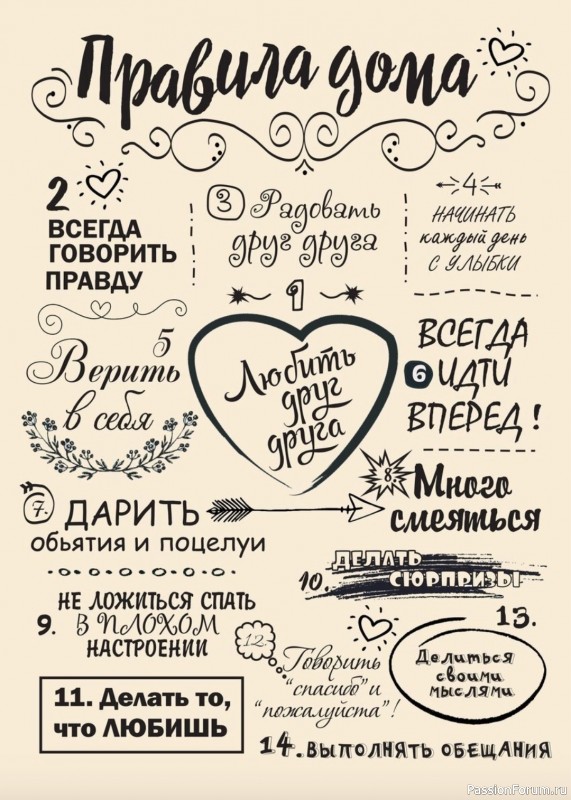 Правила дома
2
ВСЕГДА
ГОВОРИТЬ
ПРАВДУ
3 Радовать
друг друга
4
НАЧИНАТЬ
каждый день
С УЛЫБКИ
1
Любить
друг
друга
5
Верить
в себя
ВСЕГДА
6 ИДТИ
ВПЕРЕД!
7. ДАРИТЬ
обьятия и поцелуи
8. Много
смеяться
9. НЕ ЛОЖИТЬСЯ СПАТЬ
В ПЛОХОМ
НАСТРОЕНИИ
10. ДЕЛАТЬ
СЮРПРИЗЫ
11. Делать то,
что ЛЮБИШЬ
12.
Говорить
“спасибо” и
“пожалуйста”!
13.
Делиться
своими
мыслями
14. ВЫПОЛНЯТЬ ОБЕЩАНИЯ
PassionForum.ru